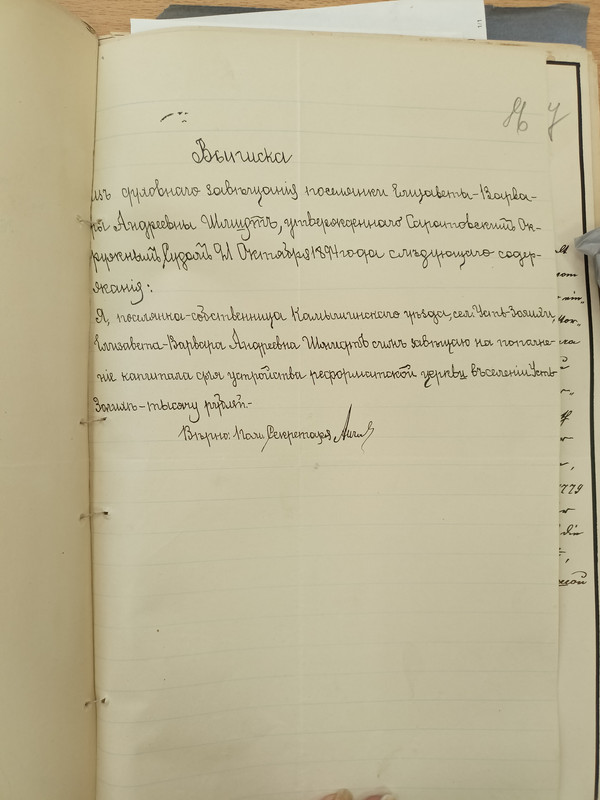 Выписка
изъ духовнаго завѣщанія поселянки Елизаветы-Варва-
ры Андреевны Шмидтъ, утвержденнаго Саратовскимъ Ок-
ружнымъ Судомъ 21 Октября 1897 года слѣдующаго содер-
жанія:
Я, поселянка-собственница Камышинскаго уѣзда, села Усть-Золихи,
Елизавета-Варвара Андреевна Шмидтъ симъ завѣщаю на пополне-
ніе капитала для устройства реформатской церкви въ селеніи Усть
Золихѣ-тысячу рублей.-
Вѣрно: Секретаря
1779